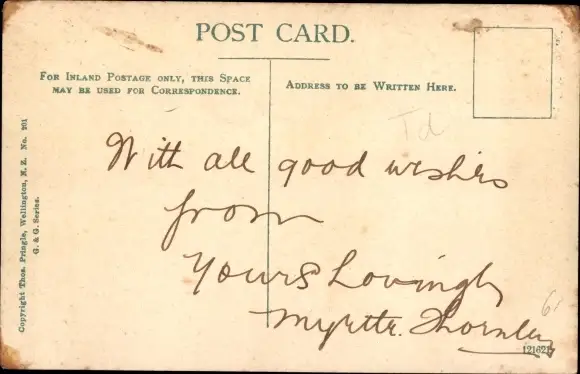 POST CARD.
FOR INLAND POSTAGE ONLY, THIS SPACE
MAY BE USED FOR CORRESPONDENCE.
ADDRESS TO BE WRITTEN HERE.
Td
With all good wishes
from
Yours Lovingly
Myrtte. Thornley
Copyright Thos. Pringle, Wellington, N.Z. No. 201
G. & G. Series.